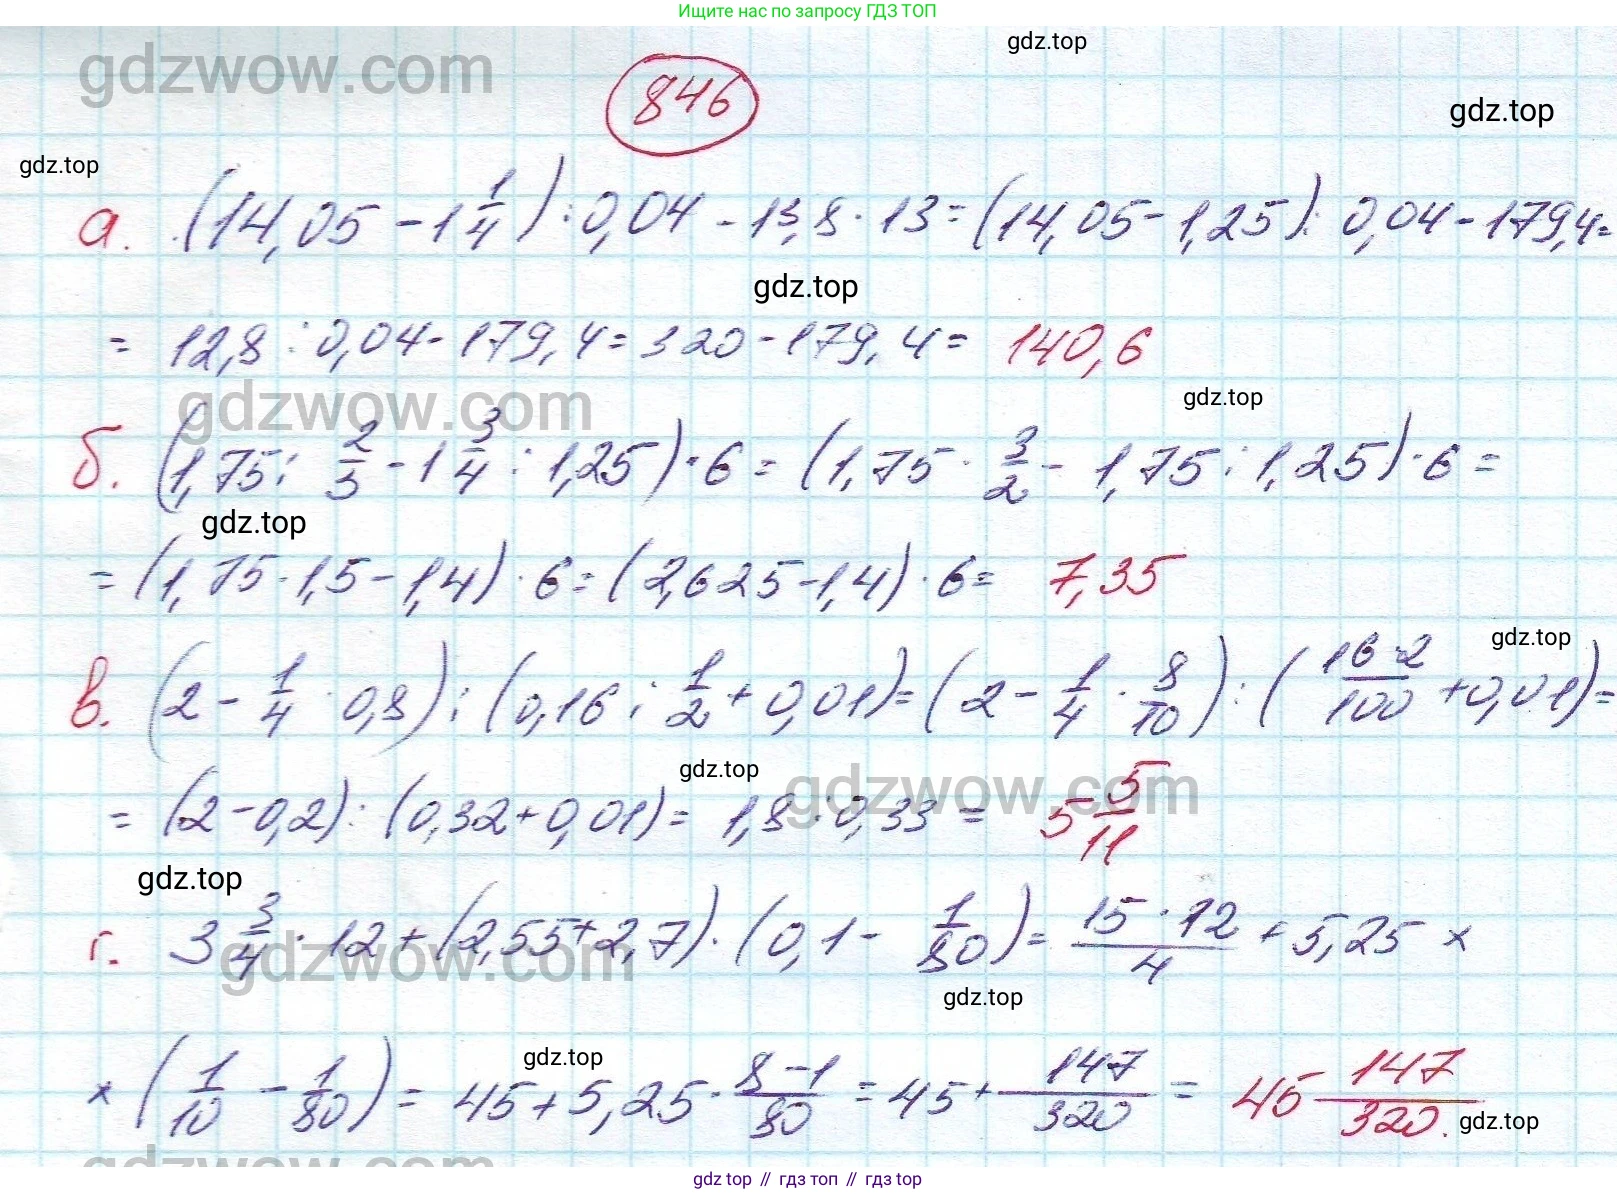 Ищите нас по запросу ГДЗ ТОП
gdz.top
gdzwow.com
846
gdz.top
gdz.top
а. (14,05 - 1 1/4) : 0,04 - 13,8 · 13 = (14,05 - 1,25) : 0,04 - 179,4 =
gdz.top
= 12,8 : 0,04 - 179,4 = 320 - 179,4 = 140,6
gdzwow.com
gdz.top
б. (1,75 : 2/3 - 1 3/4 : 1,25) · 6 = (1,75 · 3/2 - 1,75 : 1,25) · 6 =
gdz.top
= (1,75 · 1,5 - 1,4) · 6 = (2,625 - 1,4) · 6 = 7,35
gdz.top
в. (2 - 1/4 · 0,8) : (0,16 : 1/2 + 0,01) = (2 - 1/4 · 8/10) : (16·2/100 + 0,01) =
gdz.top
gdzwow.com
= (2 - 0,2) : (0,32 + 0,01) = 1,8 : 0,33 = 5 5/11
gdz.top
г. 3 3/4 · 12 + (2,55 + 2,7) · (0,1 - 1/80) = 15·12/4 + 5,25 ×
gdzwow.com
gdz.top
gdz.top
× (1/10 - 1/80) = 45 + 5,25 · 8-1/80 = 45 + 147/320 = 45 147/320.
gdz.top
gdzwow.com
gdz.top // гдз топ // gdz.top